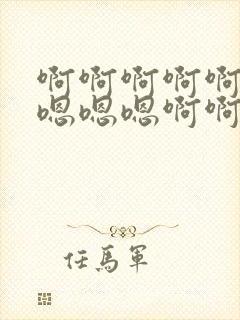 啊啊啊啊啊
嗯嗯嗯啊啊
任馬軍